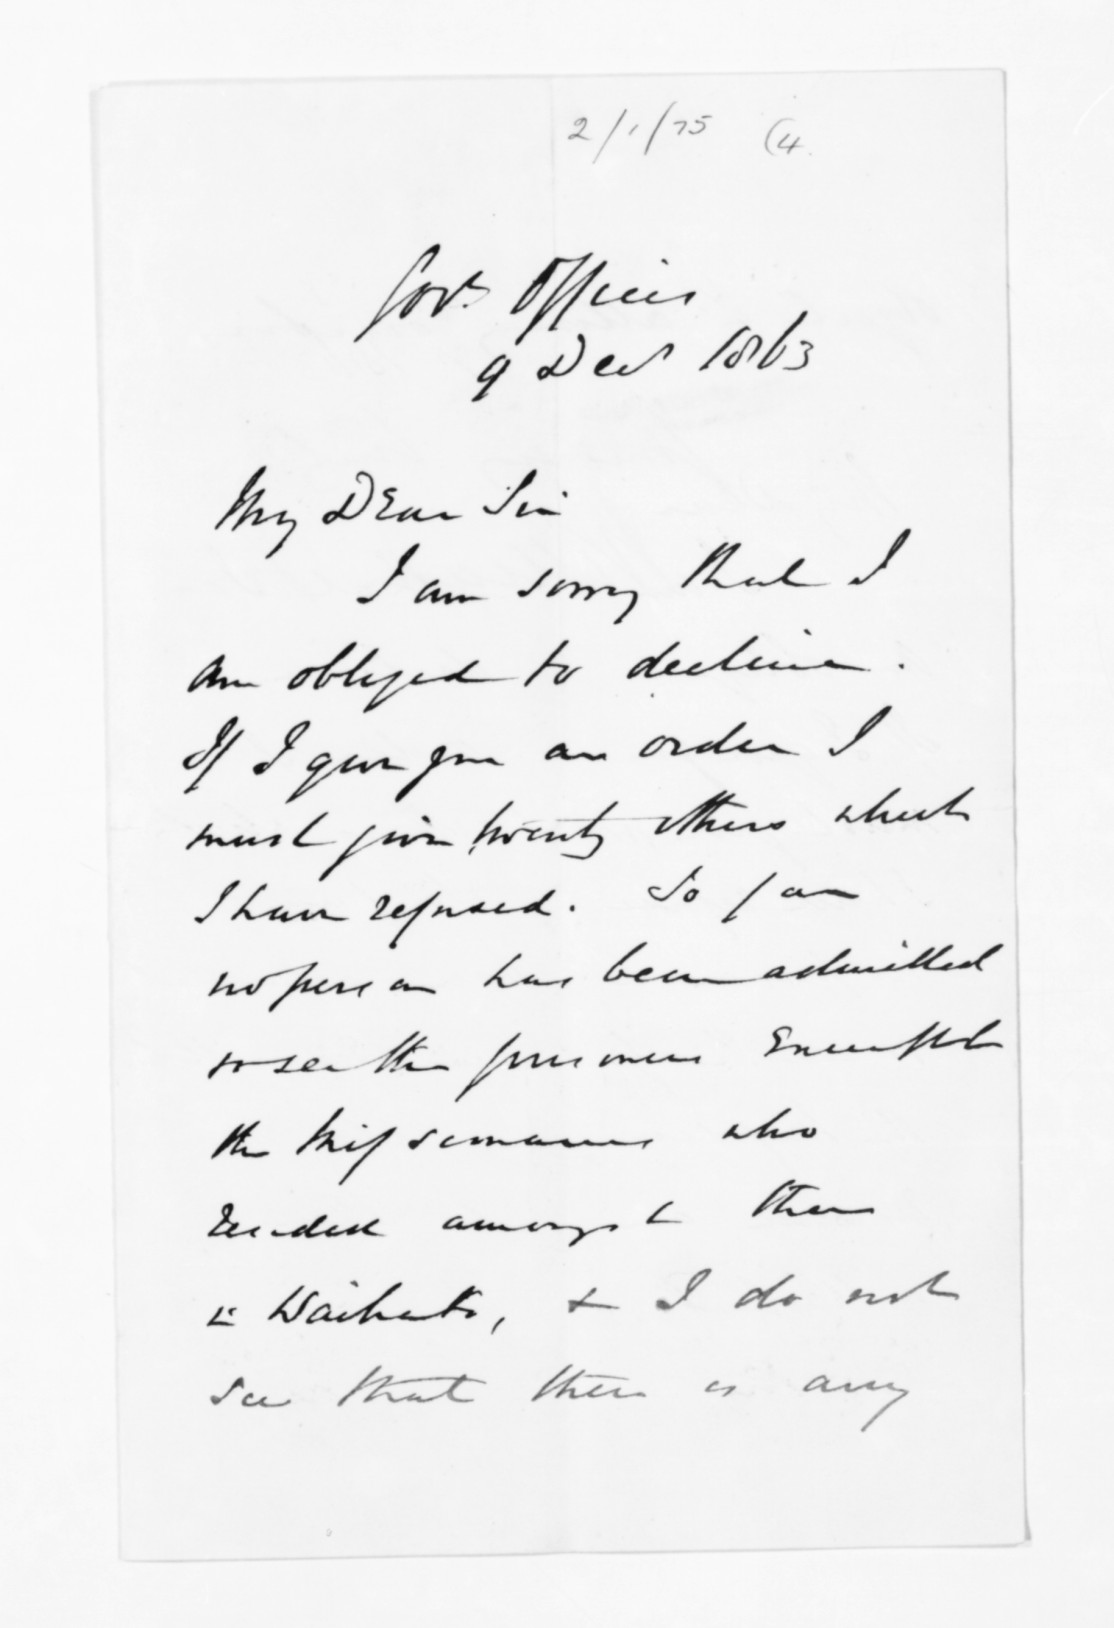 2/1/75 (4.
Govt Offices
9 Decr 1863
My Dear Sir
I am sorry that I
am obliged to decline.
If I give you an order I
must give twenty others which
I have refused. So far
no person has been admitted
to see the prisoners Except
the Missionaries who
resided amongst them
in Waikato, & I do not
see that there is any